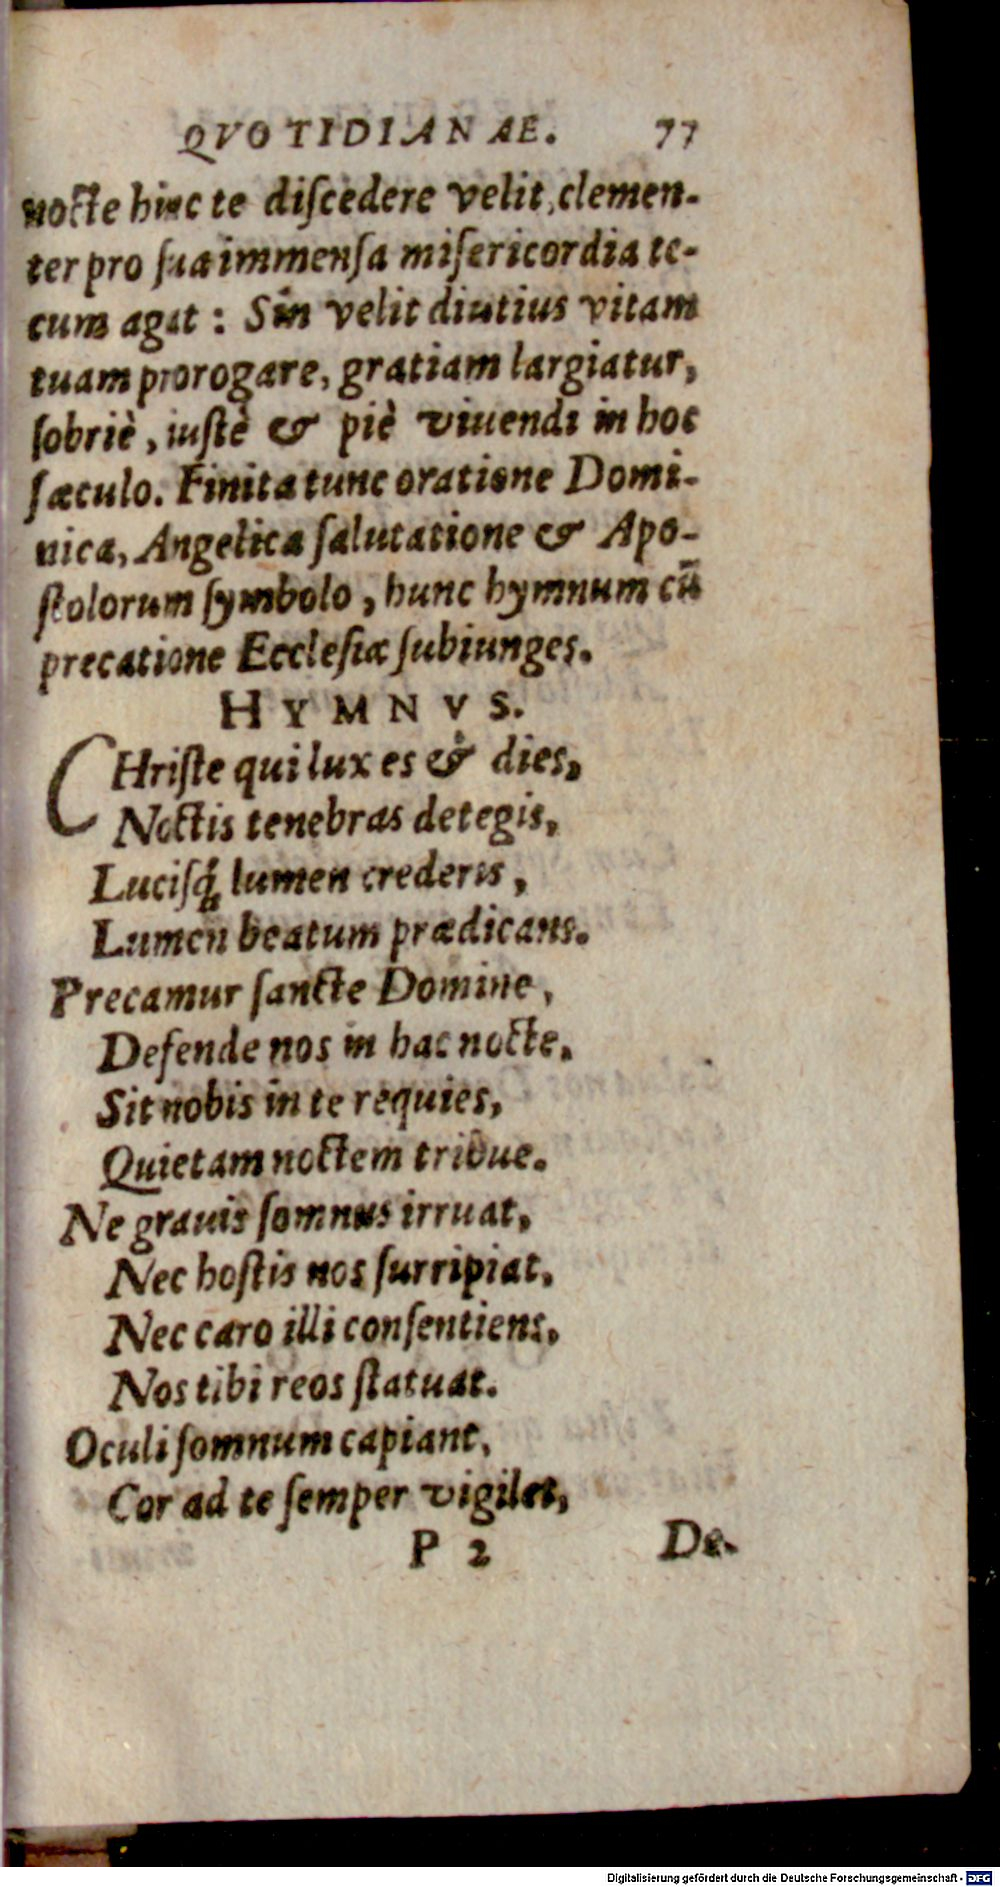 QVOTIDIANAE. 77
nocte hinc te diſcedere velit, clemen-
ter pro ſua immenſa miſericordia te-
cum agat : Sin velit diutius vitam
tuam prorogare, gratiam largiatur,
ſobriè, iuſtè & piè viuendi in hoc
ſæculo. Finita tunc oratione Domi-
nica, Angelica ſalutatione & Apo-
ſtolorum ſymbolo, hunc hymnum cū
precatione Eccleſiæ ſubiunges.
HYMNVS.
CHriſte qui lux es & dies,
Noctis tenebras detegis,
Luciſq́ lumen crederis,
Lumen beatum prædicans.
Precamur ſancte Domine,
Defende nos in hac nocte.
Sit nobis in te requies,
Quietam noctem tribue.
Ne grauis ſomnus irruat,
Nec hoſtis nos ſurripiat,
Nec caro illi conſentiens,
Nos tibi reos ſtatuat.
Oculi ſomnum capiant,
Cor ad te ſemper vigilet,
P 2 De-
Digitalisierung gefördert durch die Deutsche Forschungsgemeinschaft - DFG